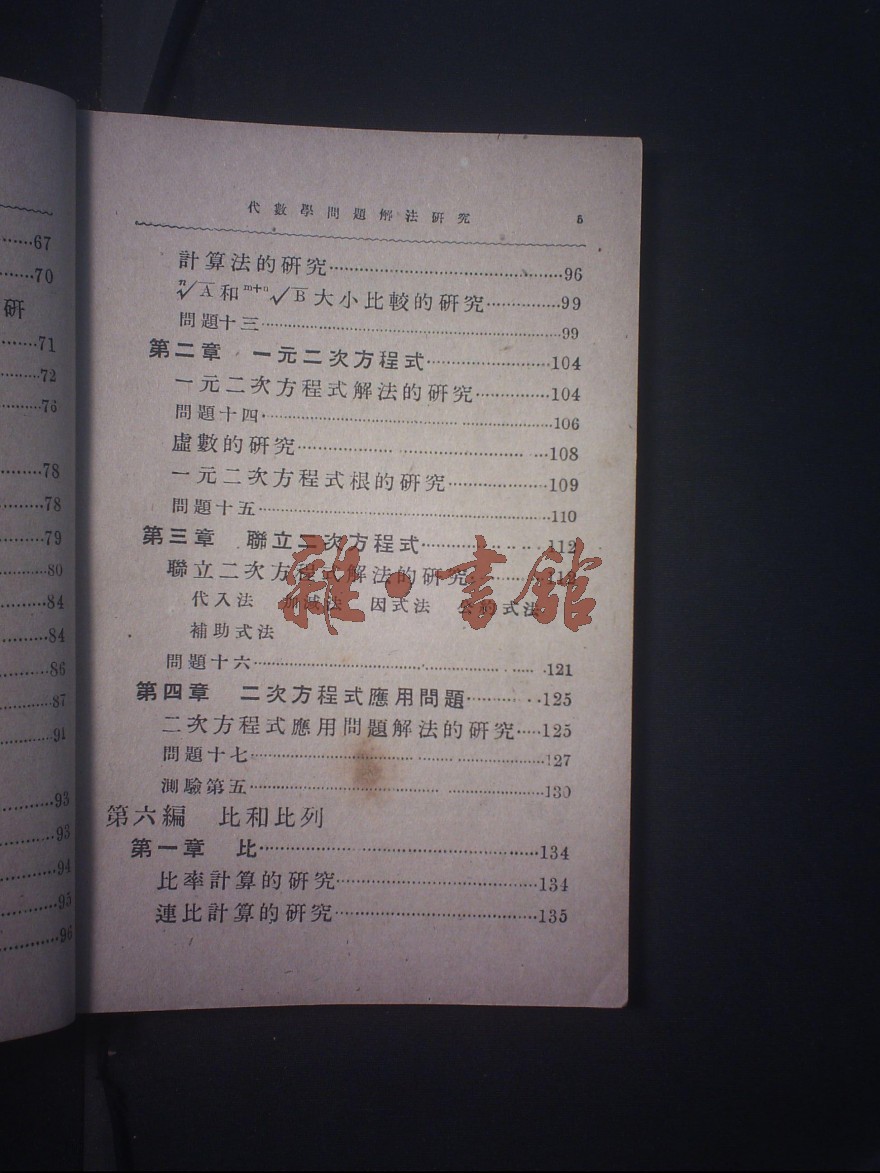 67
70
研
71
72
76
78
78
79
80
84
84
86
87
91
93
93
94
95
96
代數學問題解法研究 5
計算法的研究……96
ⁿ√A和ᵐ⁺ⁿ√B大小比較的研究……99
問題十三……99
第二章 一元二次方程式……104
一元二次方程式解法的研究……104
問題十四……106
虛數的研究……108
一元二次方程式根的研究……109
問題十五……110
第三章 聯立二次方程式……112
聯立二次方程式解法的研究……112
代入法 加減法 因式法 公約式法
補助式法
問題十六……121
第四章 二次方程式應用問題……125
二次方程式應用問題解法的研究……125
問題十七……127
測驗第五……130
第六編 比和比列
第一章 比……134
比率計算的研究……134
連比計算的研究……135
雜·書館